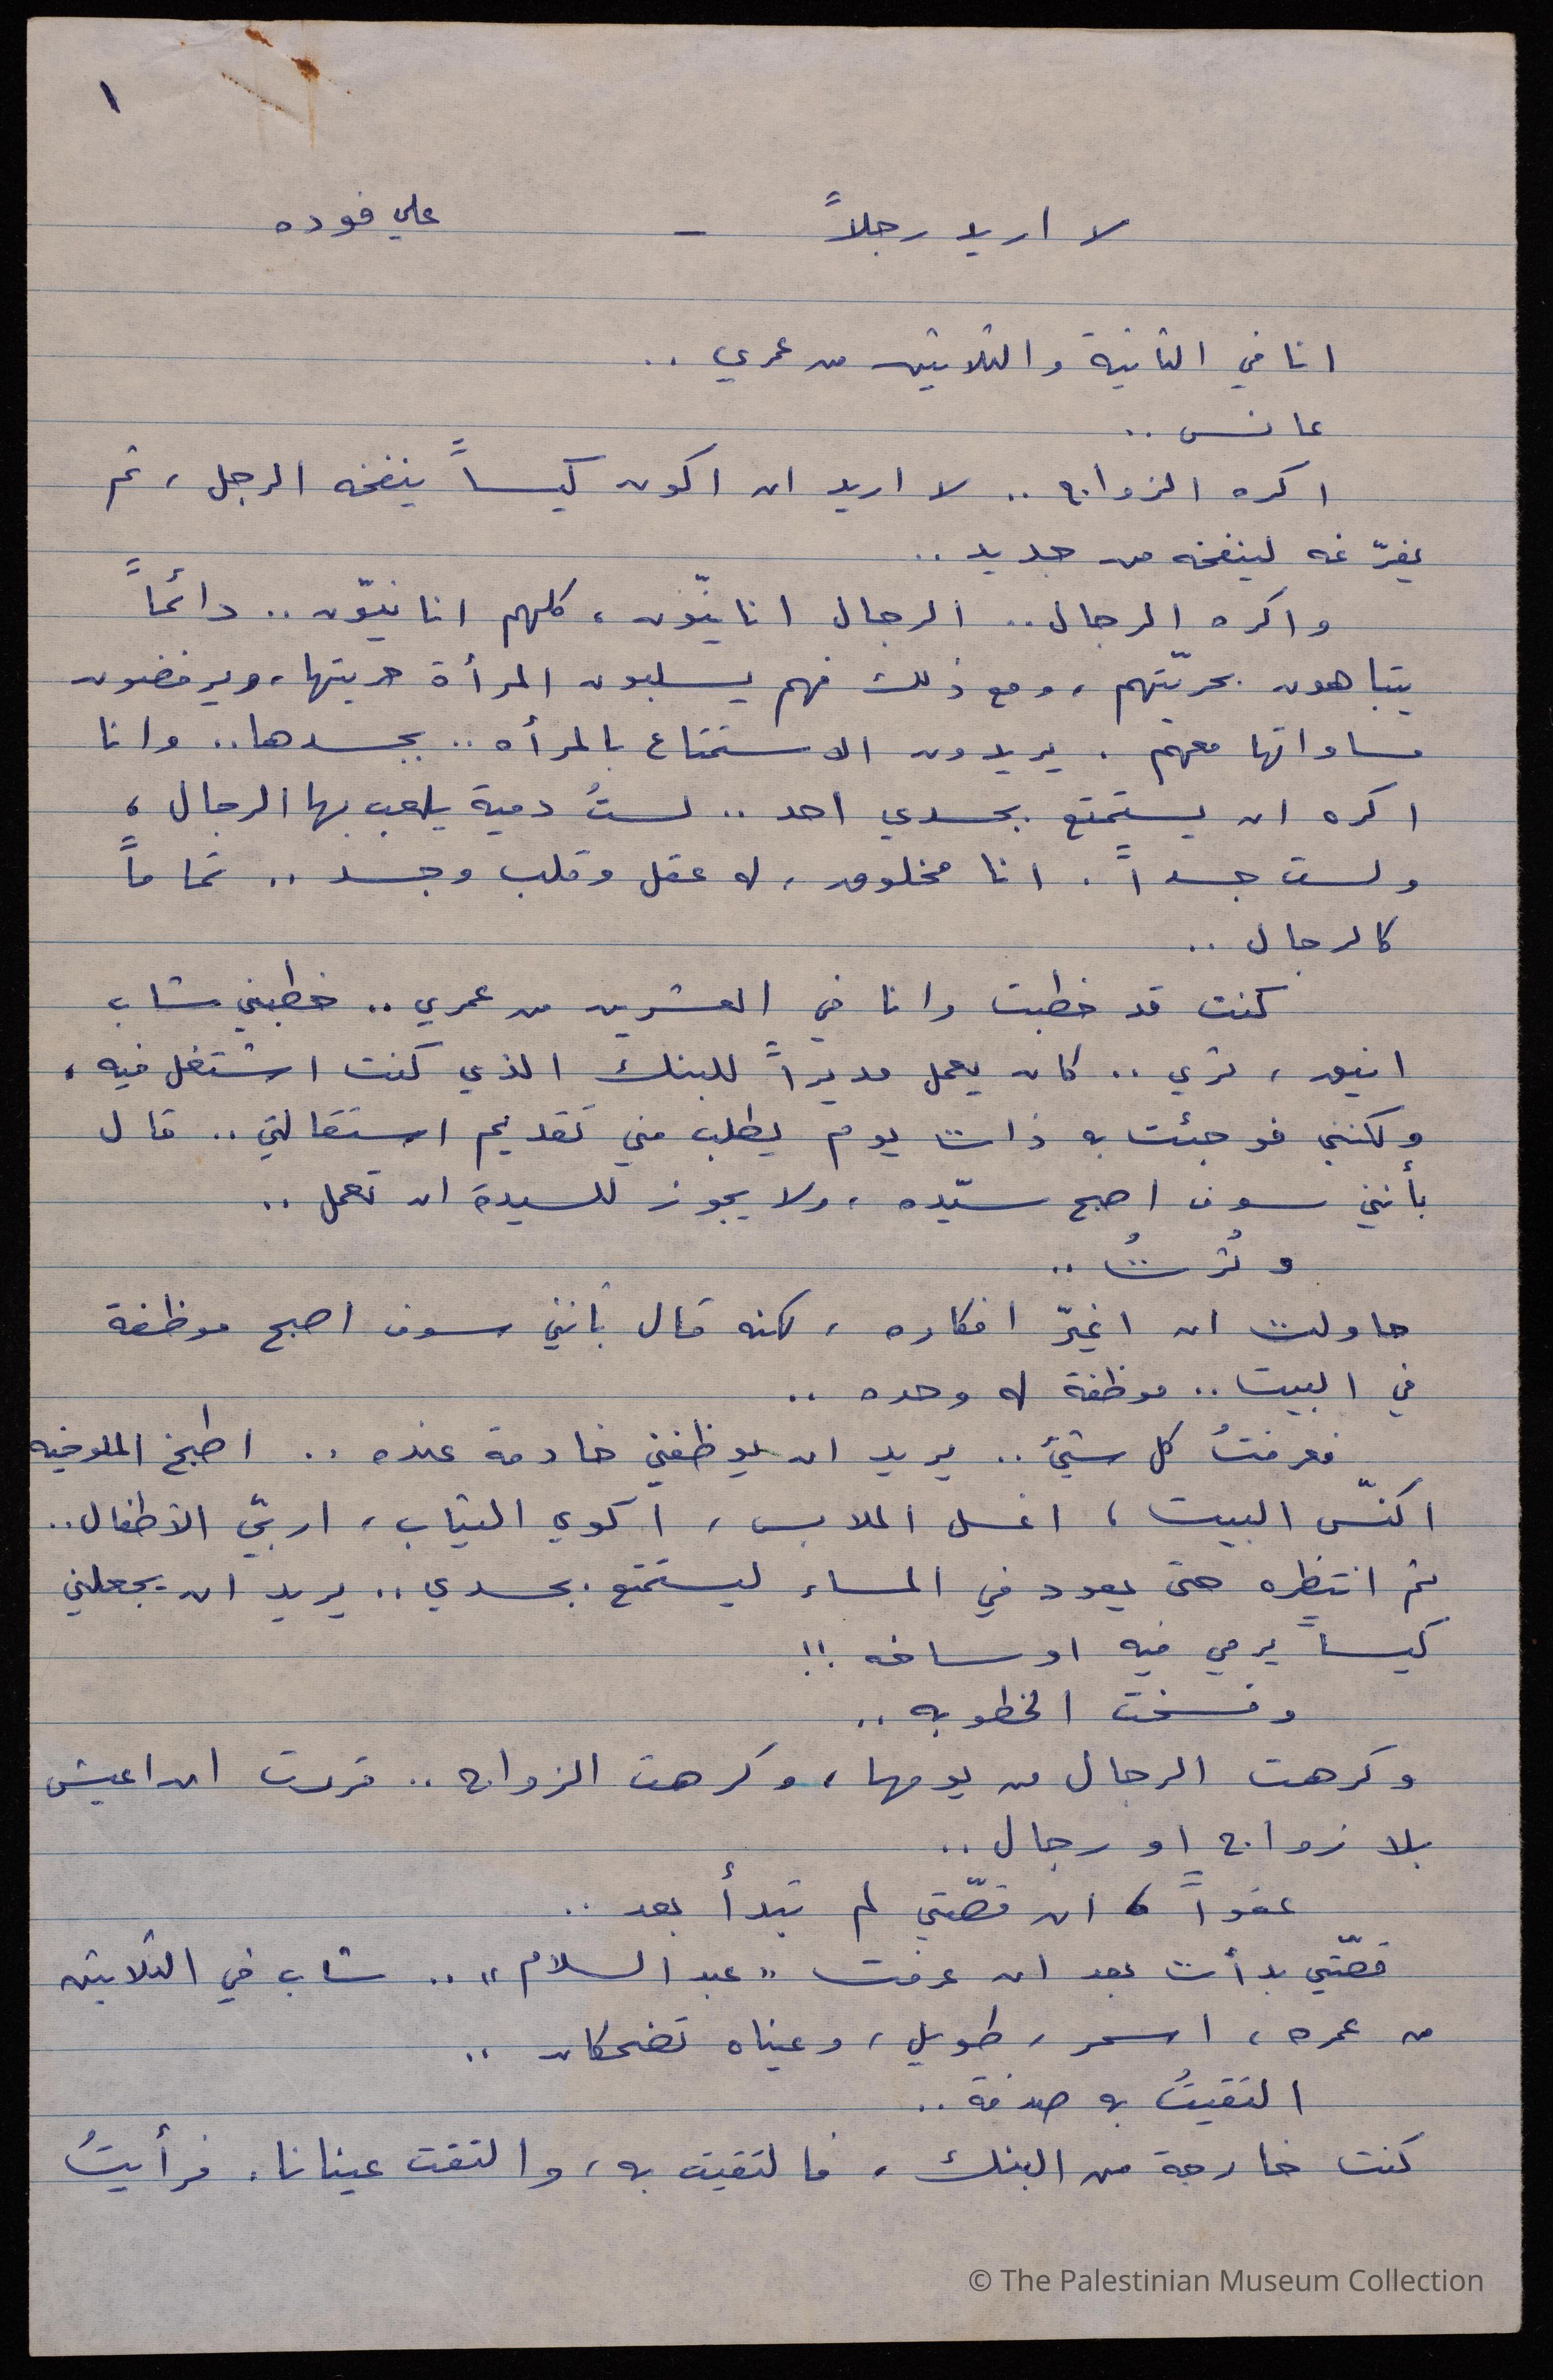 ١
لا اريد رجلاً - علي فوده
انا في الثانية والثلاثين من عمري ..
عانس ..
اكره الزواج .. لا اريد ان اكون كيساً ينفخه الرجل ، ثم
يفرّغه لينفخه من جديد ..
واكره الرجال .. الرجال انانيّون ، كلهم انانيّون .. دائماً
يتباهون بحريّتهم ، ومع ذلك فهم يسلبون المرأة حريتها ، ويرفضون
مساواتها معهم . يريدون الاستمتاع بالمرأه .. بجسدها .. وانا
اكره ان يستمتع بجسدي احد .. لستُ دمية يلعب بها الرجال ،
ولست جسداً . انا مخلوق ، له عقل وقلب وجسد .. تماماً
كالرجال ..
كنت قد خطبت وانا في العشرين من عمري .. خطبني شاب
انيق ، ثري .. كان يعمل مديراً للبنك الذي كنت اشتغل فيه ،
ولكنني فوجئت به ذات يوم يطلب مني تقديم استقالتي .. قال
بأنني سوف اصبح سيّده ، ولا يجوز للسيدة ان تعمل ..
وثُرتُ ..
حاولت ان اغيّر افكاره ، لكنه قال بأنني سوف اصبح موظفة
في البيت .. موظفة له وحده ..
فعرفتُ كل شيئ .. يريد ان يوظفني خادمة عنده .. اطبخ الملوخيه
اكنّس البيت ، اغسل الملابس ، اكوي الثياب ، اربّي الأطفال ..
ثم انتظره حتى يعود في المساء ليستمتع بجسدي .. يريد ان يجعلني
كيساً يرمي فيه اوساخه !!
وفسخت الخطوبه ..
وكرهت الرجال من يومها ، وكرهت الزواج .. قررت ان اعيش
بلا زواج او رجال ..
عفواً ، ان قصّتي لم تبدأ بعد ..
قصّتي بدأت بعد ان عرفت "عبد السلام" .. شاب في الثلاثين
من عمره ، اسمر ، طويل ، وعيناه تضحكان ..
التقيتُ به صدفة ..
كنت خارجة من البنك ، فالتقيت به ، والتقت عينانا . فرأيتُ
© The Palestinian Museum Collection